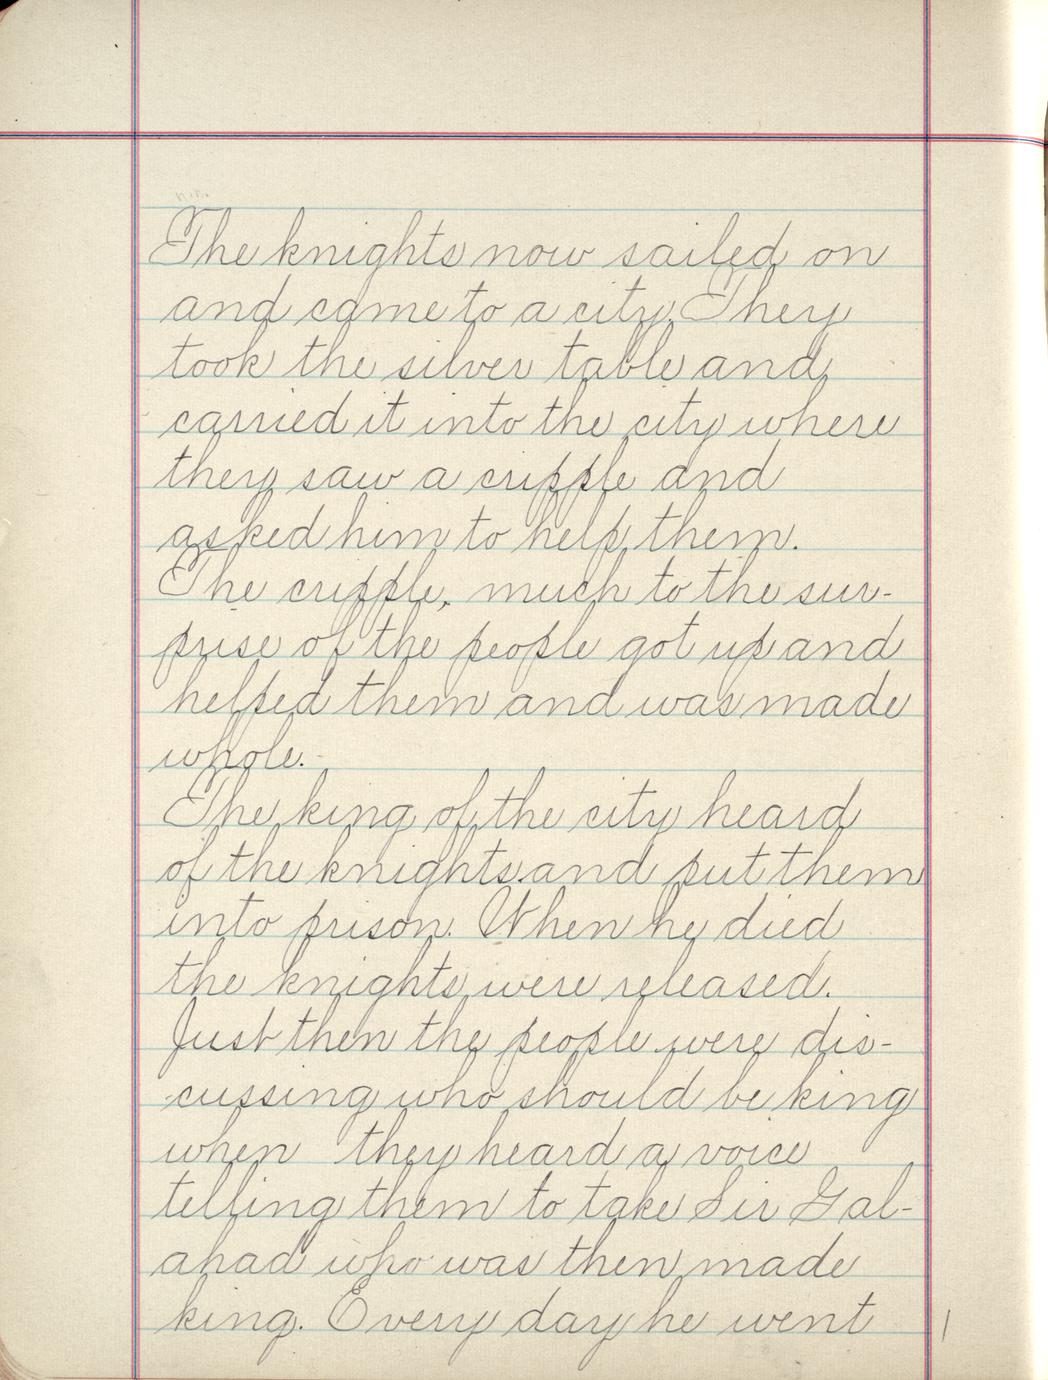 The knights now sailed on
and came to a city. They
took the silver table and
carried it into the city where
they saw a cripple and
asked him to help them.
The cripple, much to the sur-
prise of the people got up and
helped them and was made
whole.
The king of the city heard
of the knights and put them
into prison. When he died
the knights were released.
Just then the people were dis-
cussing who should be king
when they heard a voice
telling them to take Sir Gal-
ahad who was then made
king. Every day he went